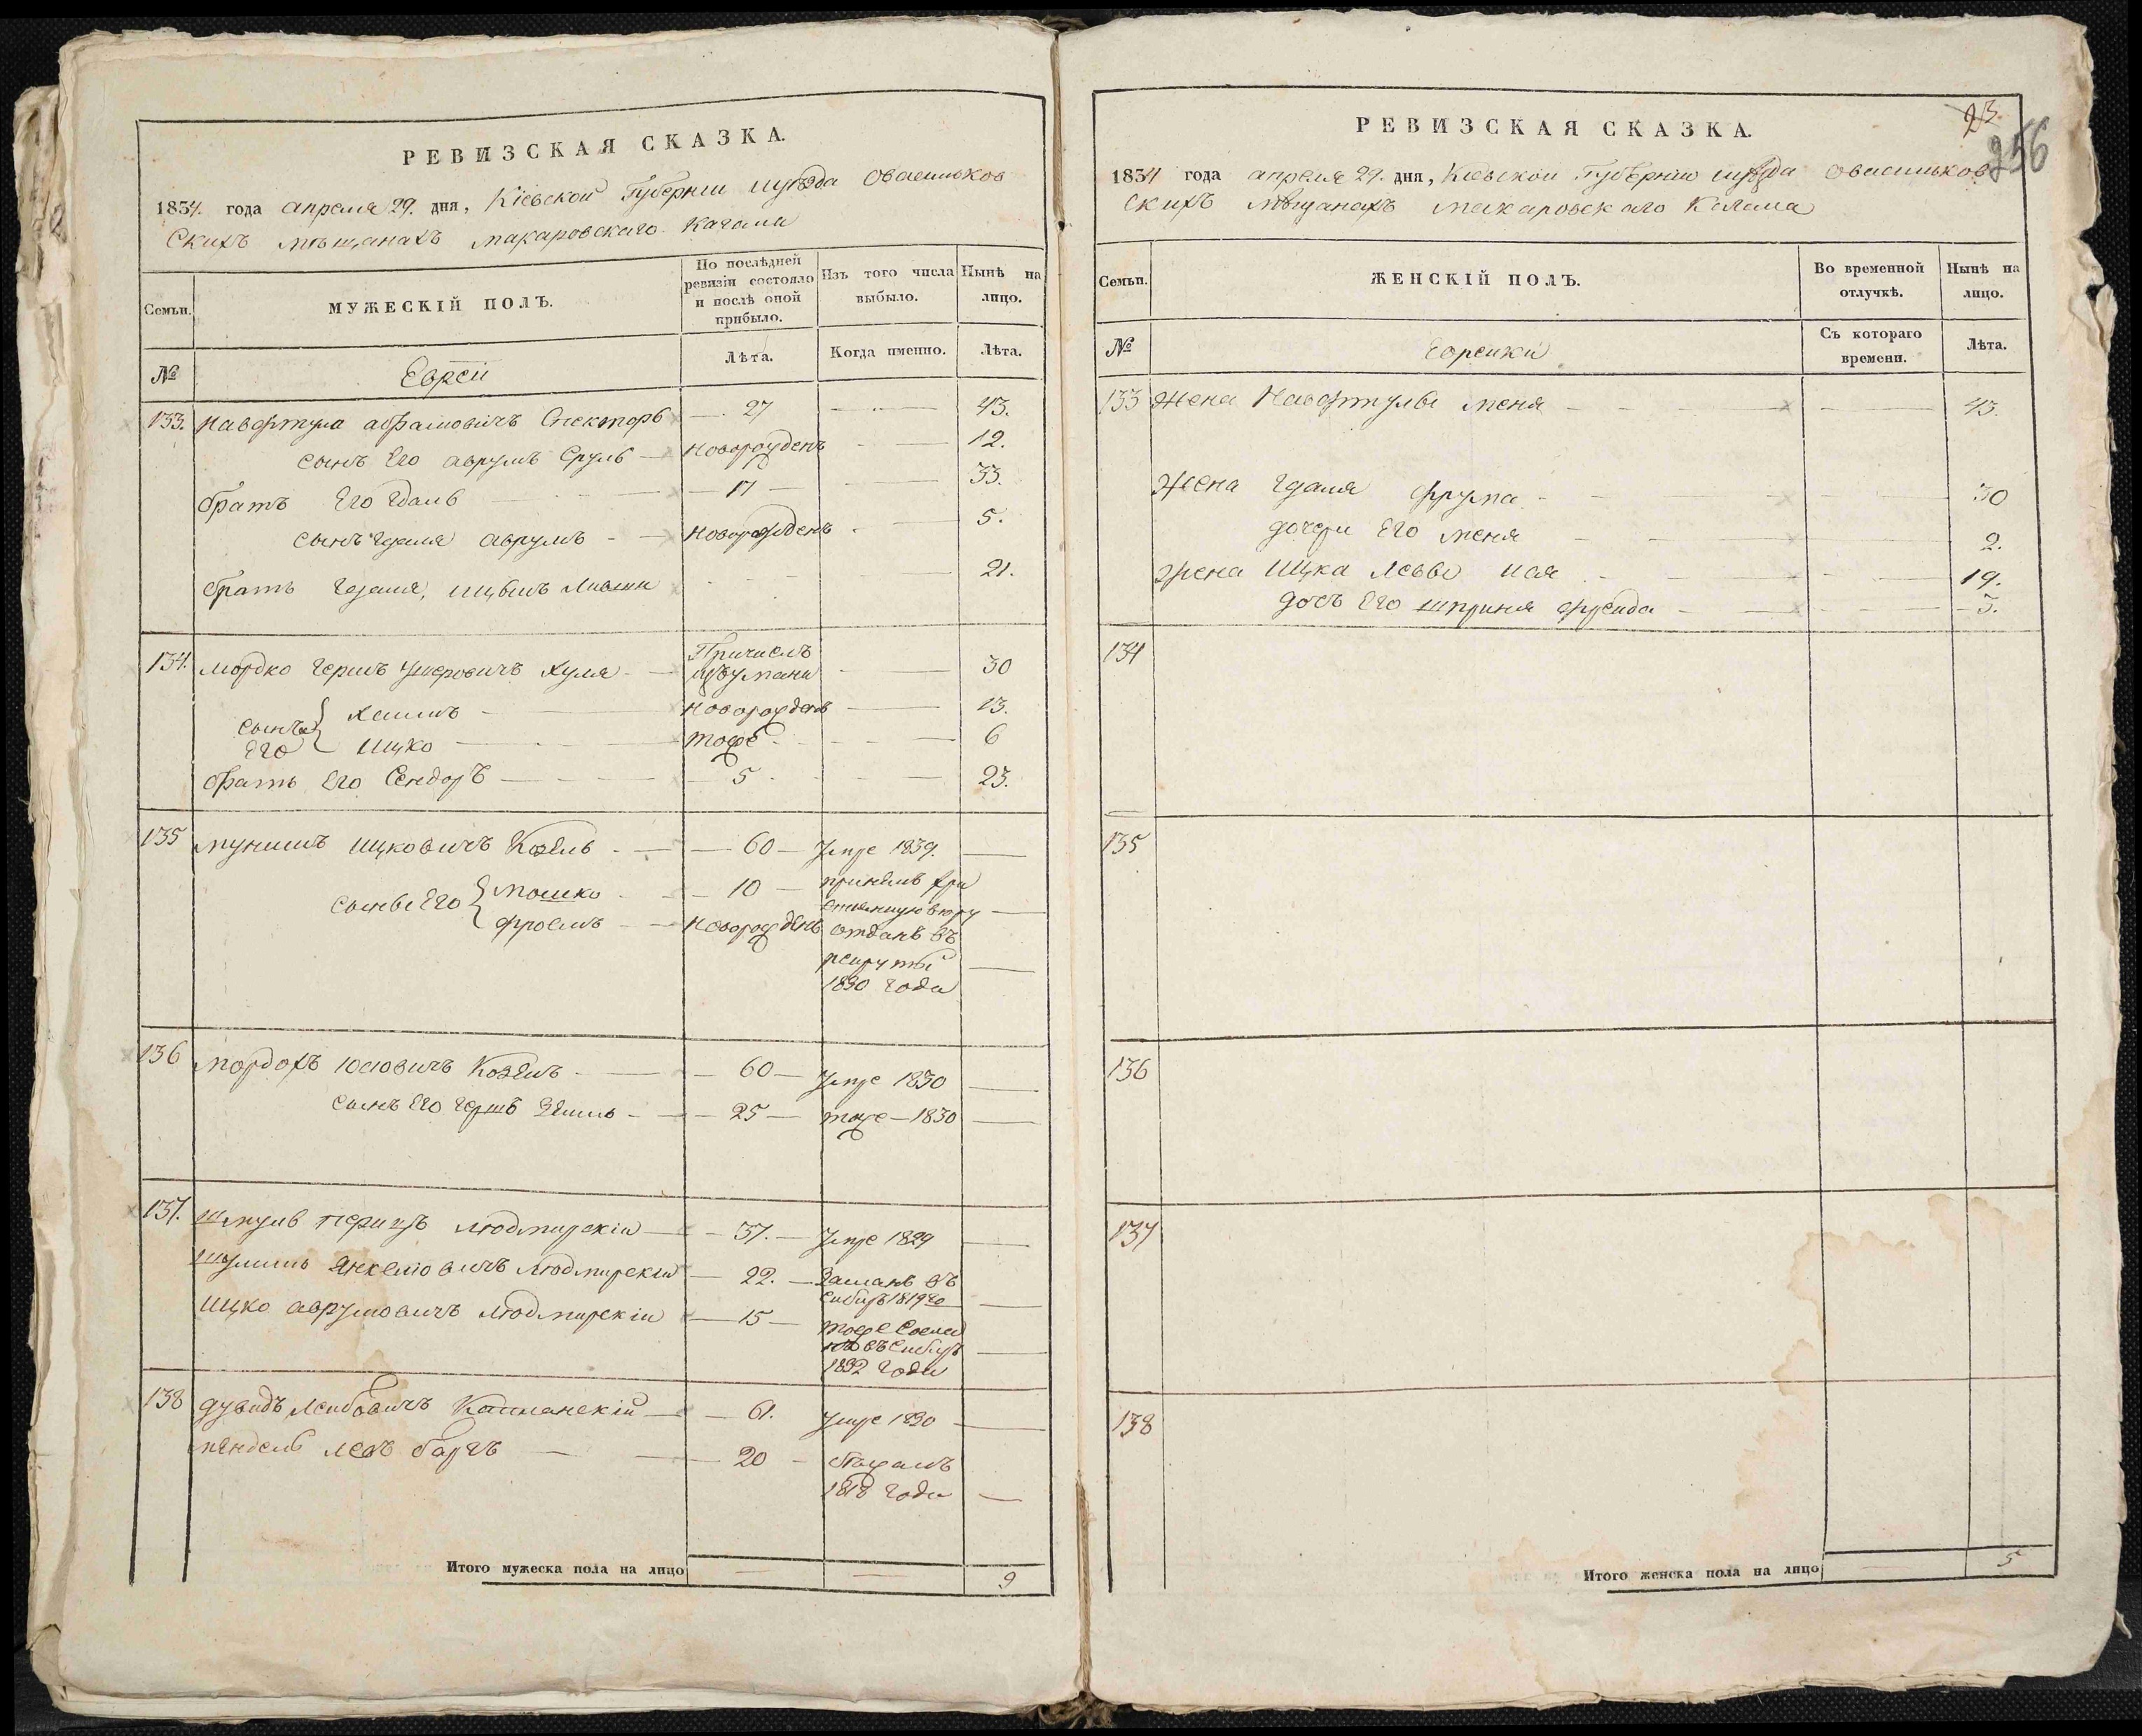 РЕВИЗСКАЯ СКАЗКА.
1834. года апреля 29. дня, Кіевской Губерніи и уѣзда о васильков
скихъ мѣщанахъ макаровскаго Кагала
Семьи.
МУЖЕСКІЙ ПОЛЪ.
По послѣдней ревизіи состояло и послѣ оной прибыло.
Изъ того числа выбыло.
Нынѣ на лицо.
№
Евреи
Лѣта.
Когда именно.
Лѣта.
133. Нафтула абрамовичъ — 27 — 43.
сынъ Его аврумъ Сруль — новорожденъ — 12.
братъ Его Гдаль — 17 — 33.
сынъ Гдаля аврумъ — новорожденъ — 5.
братъ Гдаля, 21.
134. мордко Гершъ Ушеровичъ Хуля — Причислъ 30
сынъя Его { Хаимъ — новорожденъ — 13.
Ицко — тоже — 6
братъ Его Сендоръ — 5 — 23.
135 мунишъ Ицковичъ Козель — 60 — Умре 1839. —
сыны Его { Мошко — 10 — принялъ хри
стіянскую вѣру —
фроимъ — новорожденъ отданъ въ
рекруты —
1830 Года
136 мордохъ Юсіовичъ Козель — 60 — Умре 1830 —
сынъ Его Гершъ — 25 — тоже — 1830 —
137. шмуль перицъ людмирскіи — 37. — Умре 1829 —
Янкеліовичъ людмирскіи — 22. — Засланъ въ
сибирь 1819го —
Ицко аврумовичъ людмирскіи — 15 — тоже Сосла
нъ въ Сибирь —
1832 Года
138 дувидъ Лейбовичъ — 61. Умре 1830 —
мендель — 20 — бѣжалъ
1818 Года —
Итого мужеска пола на лицо — — 9
23
256
РЕВИЗСКАЯ СКАЗКА.
1834 года апреля 29. дня, Кіевской Губерніи и уѣзда о васильков
скихъ мѣщанахъ макаровскаго Кагала
Семьи.
ЖЕНСКІЙ ПОЛЪ.
Во временной отлучкѣ.
Нынѣ на лицо.
№
Еврейки
Съ котораго времени.
Лѣта.
133 Жена Нафтулы меня — — 43.
Жена Гдаля фрума — — 30
дочери Его меня — — 2.
жена Ицка — — 19.
дочь Его шприня фрейда — — 3.
134
135
136
137
138
Итого женска пола на лицо — 5